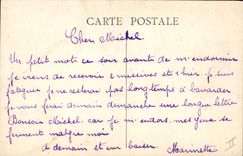 CARTE POSTALE
Cher Michel
Un petit mot ce soir avant de m'endormir
je viens de recevoir 2 missives et hier je suis
fatiguée je ne resterai pas longtemps à bavarder
je vous ferai demain dimanche une longue lettre
Bonsoir Michel car je m'endors mes yeux se
ferment malgré moi
à demain et un baiser Marinette
II